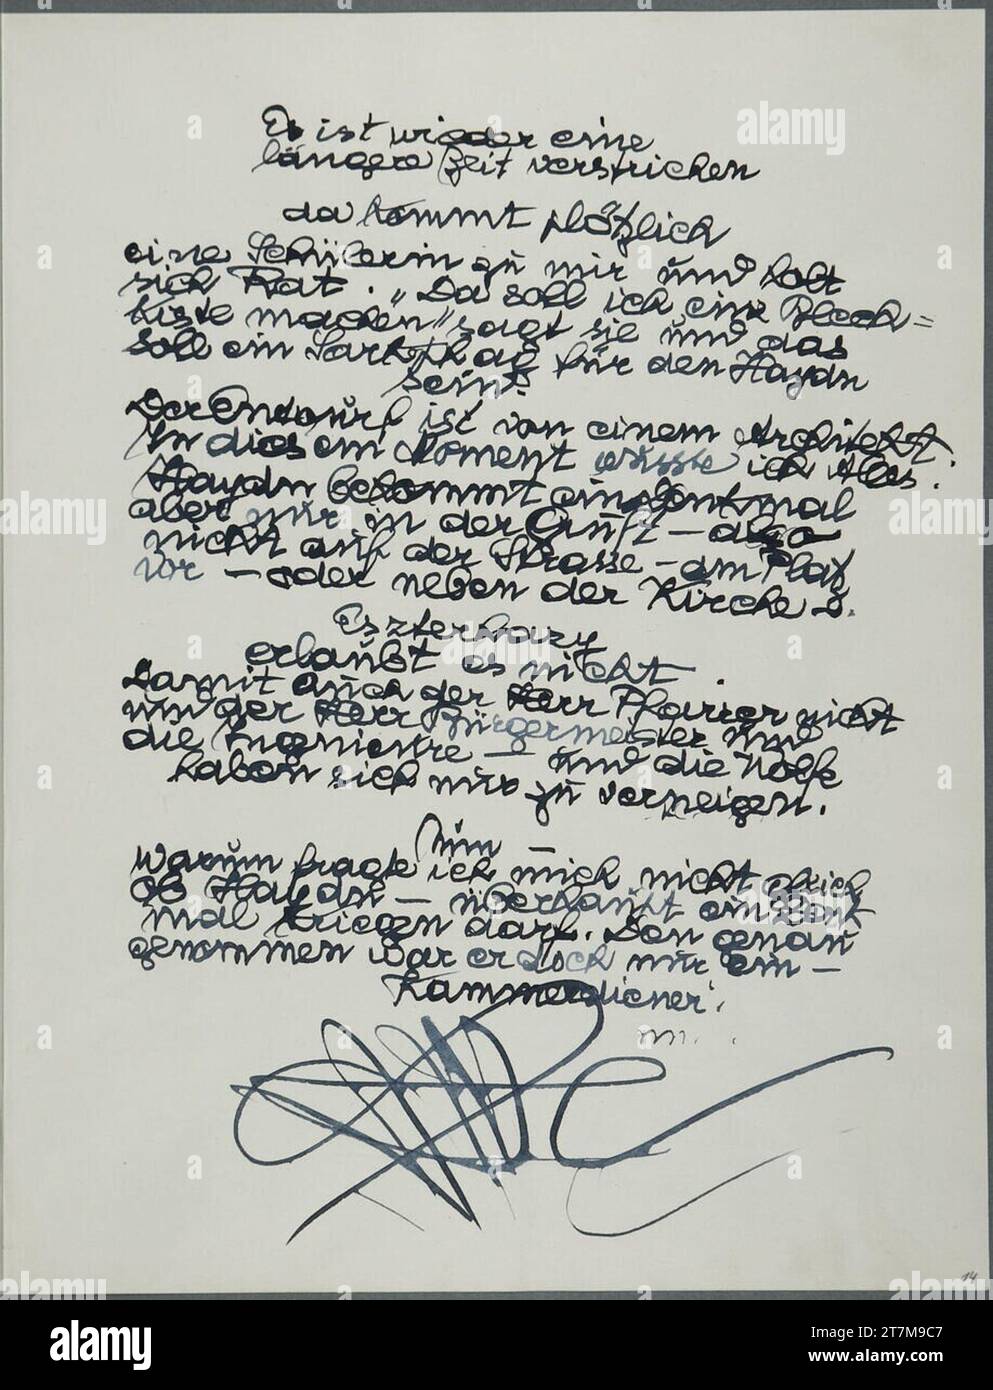 Es ist wieder eine
längere Zeit verstrichen
da kommt plötzlich
eine Schülerin zu mir und holt
sich Rat. "Da soll ich eine Blech=
kiste machen" sagt sie und das
soll ein Sarkophag für den Haydn
sein?
Der Entwurf ist von einem Architekt.
In dies em Moment wusste ich Alles.
Haydn bekommt ein Denkmal
aber nur in der Gruft – also
nicht auf der Strasse – am Platz
vor – oder neben der Kirche
Eszterhazy
erlaubt es nicht.
Damit auch der Herr Pfarrer nicht
und der Herr Bürgermeister und
die Ingenieure – und die Völke
haben sich nur zu verneigen.
Nun –
Warum fragte ich mich nicht gleich
ob Haydn – überhaupt ein Denk
mal kriegen darf. Den genau
genommen war er doch nur ein –
Kammerdiener.
14
alamy
Image ID: 2T7M9C7
www.alamy.com